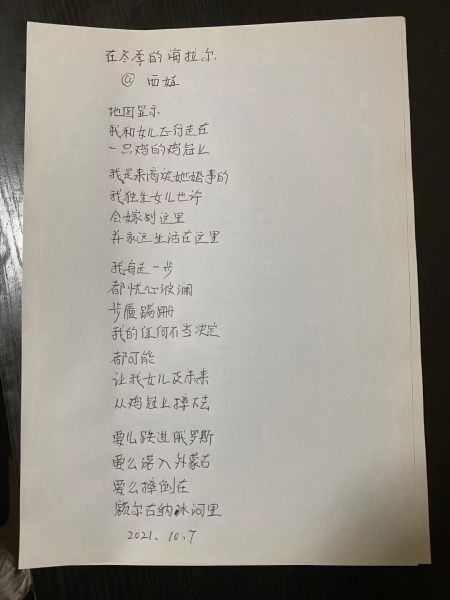 在冬季的海拉尔
@ 西娃
地图显示
我和女儿正行走在
一只鸡的鸡冠上
我是来商谈她婚事的
我独生女儿也许
会嫁到这里
并永远生活在这里
我每走一步
都忧心波澜
步履蹒跚
我的任何不当决定
都可能
让我女儿及未来
从鸡冠上摔下去
要么跌进俄罗斯
要么滚入外蒙古
要么摔倒在
额尔古纳冰河里
2021. 10. 7